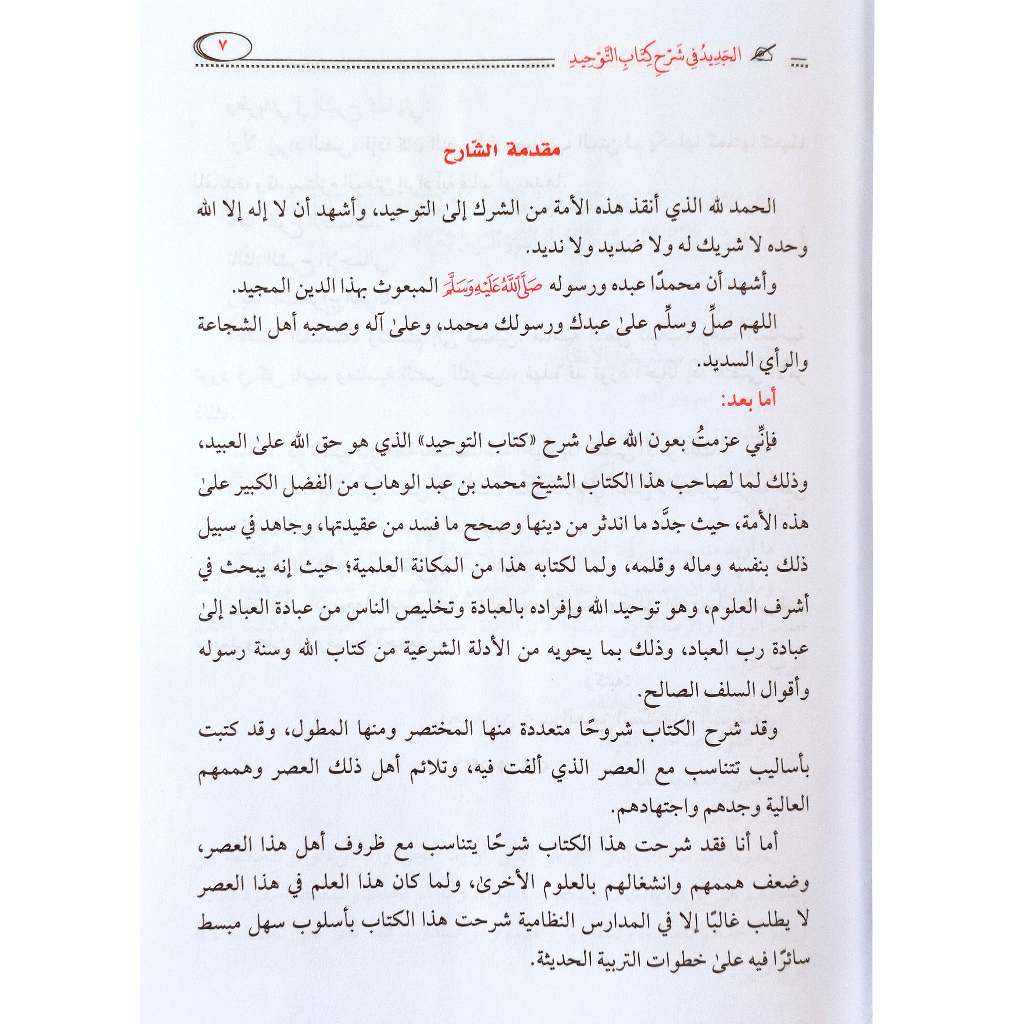 الجَدِيدُ فِي شَرْحِ كِتَابِ التَّوْحِيدِ
٧
مقدمة الشارح
الحمد لله الذي أنقذ هذه الأمة من الشرك إلى التوحيد، وأشهد أن لا إله إلا الله
وحده لا شريك له ولا ضديد ولا نديد.
وأشهد أن محمدًا عبده ورسوله صَلَّى اللَّهُ عَلَيْهِ وَسَلَّمَ المبعوث بهذا الدين المجيد.
اللهم صلِّ وسلِّم علىٰ عبدك ورسولك محمد، وعلىٰ آله وصحبه أهل الشجاعة
والرأي السديد.
أما بعد:
فإنِّي عزمتُ بعون الله علىٰ شرح «كتاب التوحيد» الذي هو حق الله علىٰ العبيد،
وذلك لما لصاحب هذا الكتاب الشيخ محمد بن عبد الوهاب من الفضل الكبير علىٰ
هذه الأمة، حيث جدَّد ما اندثر من دينها وصحح ما فسد من عقيدتها، وجاهد في سبيل
ذلك بنفسه وماله وقلمه، ولما لكتابه هذا من المكانة العلمية؛ حيث إنه يبحث في
أشرف العلوم، وهو توحيد الله وإفراده بالعبادة وتخليص الناس من عبادة العباد إلىٰ
عبادة رب العباد، وذلك بما يحويه من الأدلة الشرعية من كتاب الله وسنة رسوله
وأقوال السلف الصالح.
وقد شرح الكتاب شروحًا متعددة منها المختصر ومنها المطول، وقد كتبت
بأساليب تتناسب مع العصر الذي ألفت فيه، وتلائم أهل ذلك العصر وهممهم
العالية وجدهم واجتهادهم.
أما أنا فقد شرحت هذا الكتاب شرحًا يتناسب مع ظروف أهل هذا العصر،
وضعف هممهم وانشغالهم بالعلوم الأخرىٰ، ولما كان هذا العلم في هذا العصر
لا يطلب غالبًا إلا في المدارس النظامية شرحت هذا الكتاب بأسلوب سهل مبسط
سائرًا فيه علىٰ خطوات التربية الحديثة.